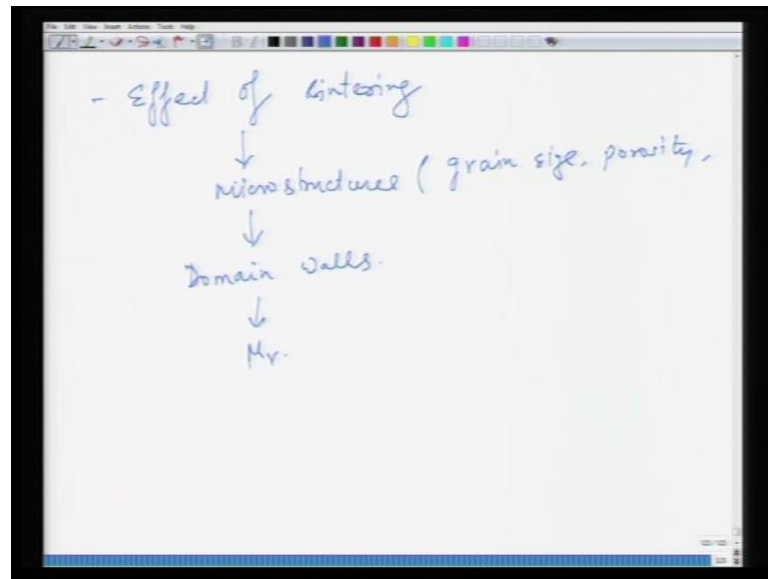 File Edit View Insert Actions Tools Help
- Effect of sintering
↓
Microstructure ( grain size, porosity,
↓
Domain walls.
↓
μr.